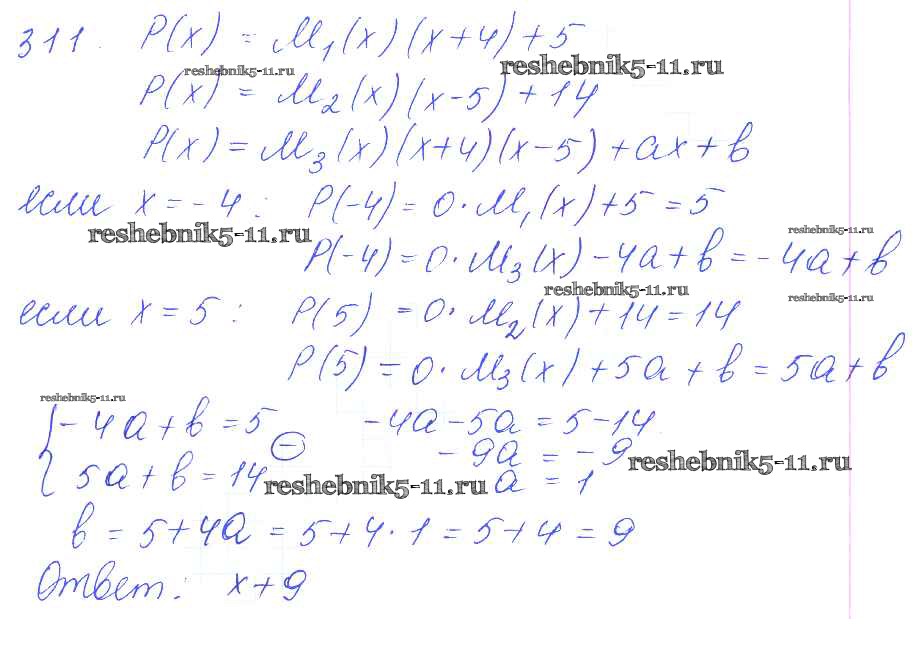 311. P(x) = M₁(x)(x+4)+5
reshebnik5-11.ru reshebnik5-11.ru
P(x) = M₂(x)(x-5)+14
P(x) = M₃(x)(x+4)(x-5)+ax+b
если x = -4 : P(-4) = 0·M₁(x)+5 = 5
reshebnik5-11.ru reshebnik5-11.ru
P(-4) = 0·M₃(x) -4a+b = -4a+b
reshebnik5-11.ru reshebnik5-11.ru
если x = 5 : P(5) = 0·M₂(x)+14 = 14
P(5) = 0·M₃(x)+5a+b = 5a+b
reshebnik5-11.ru
{ -4a+b = 5 -4a-5a = 5-14
⊖ -9a = -9
5a+b = 14 a = 1
reshebnik5-11.ru reshebnik5-11.ru
b = 5+4a = 5+4·1 = 5+4 = 9
Ответ: x+9